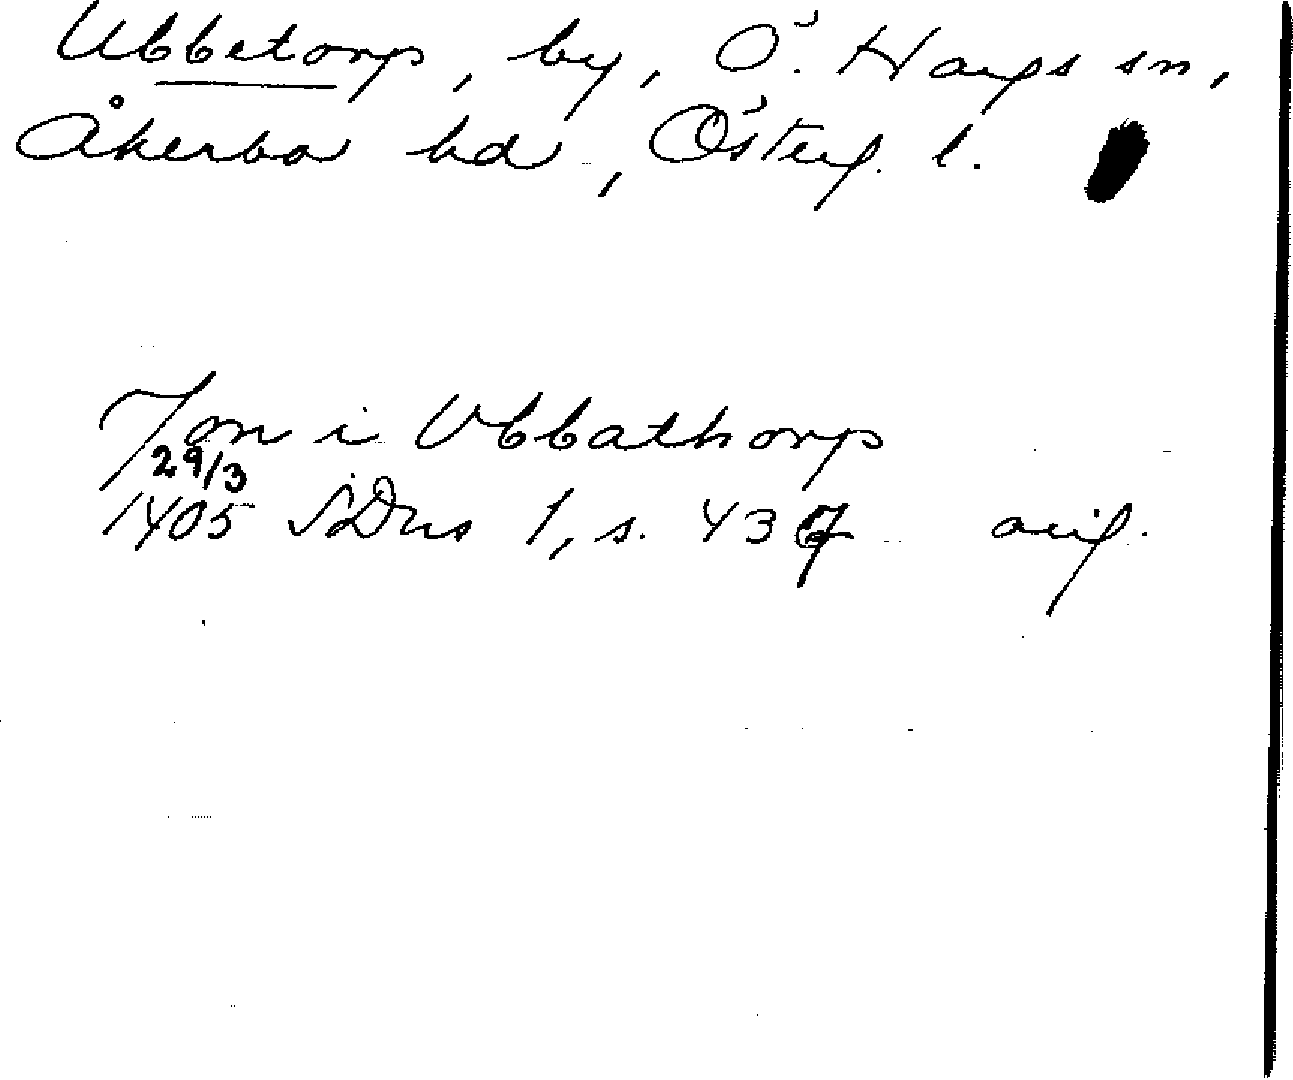 Ubbetorp, by, Ö. Hargs sn,
Åkerbo hd, Österg. l.
Jon i Vbbathorp
29/3
1405 SDns 1, s. 437 orig.